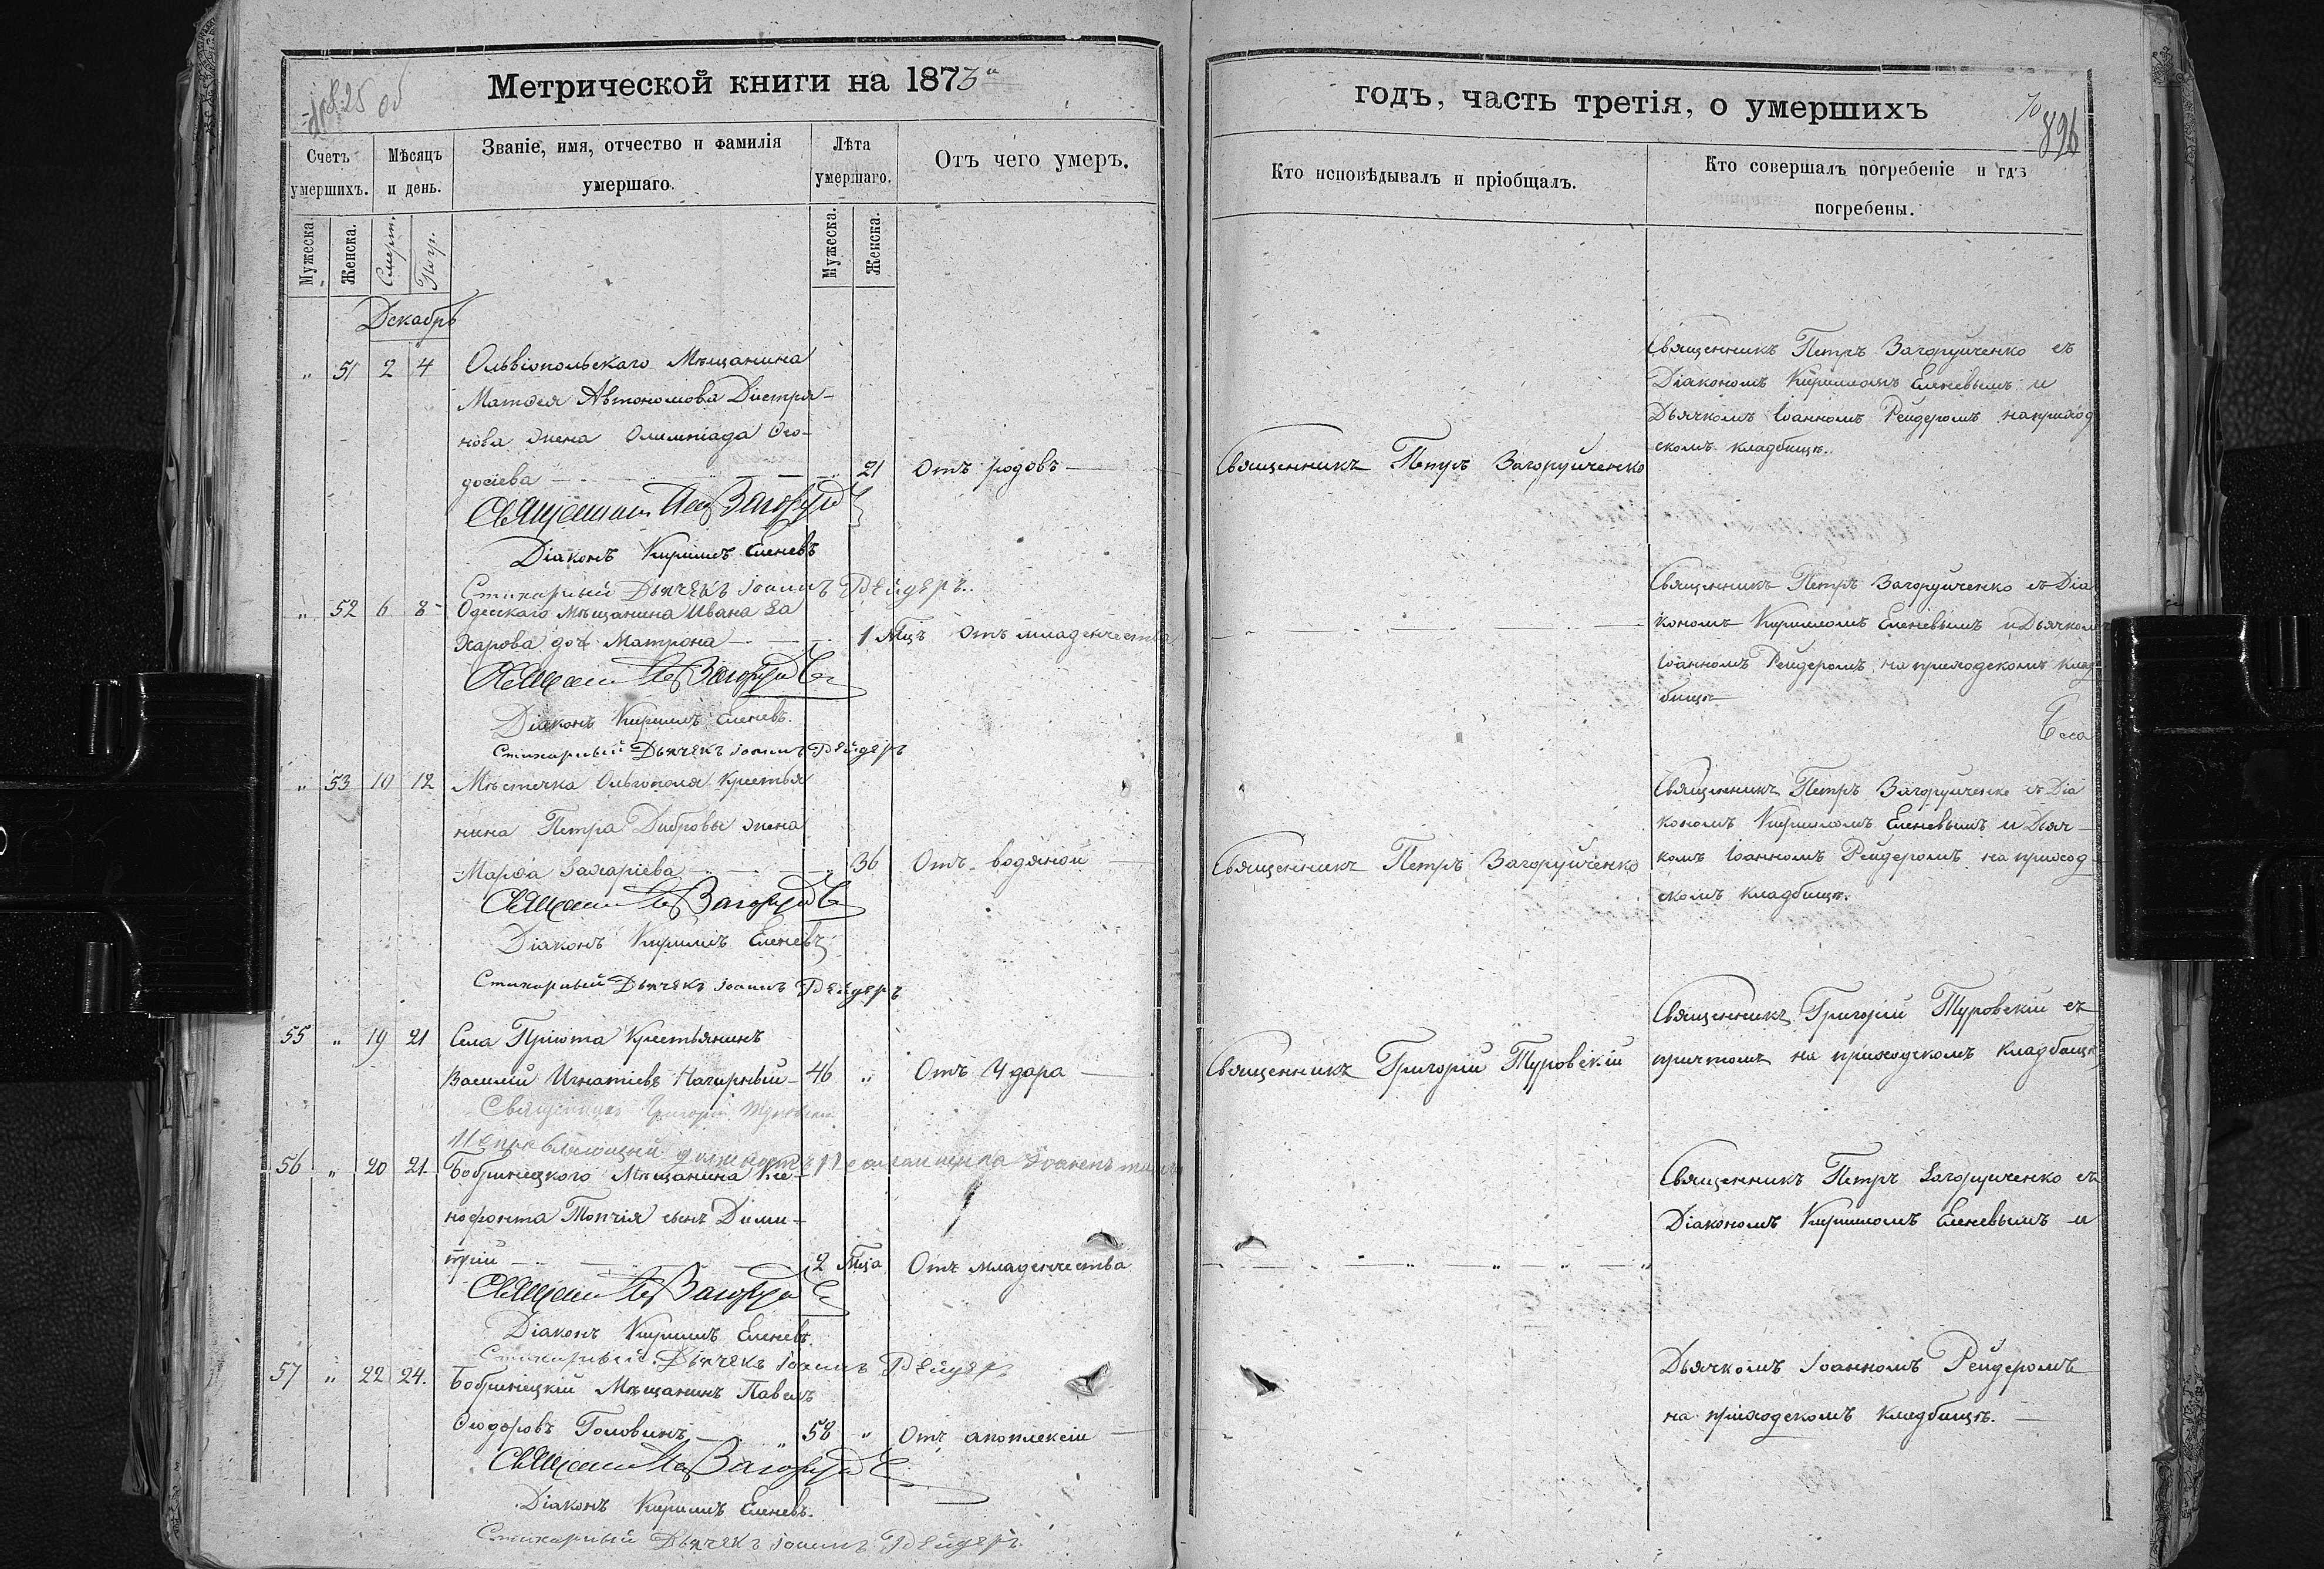 825 об
Метрической книги на 1873й
Счетъ умершихъ.
Мѣсяцъ и день.
Званіе, имя, отчество и фамилія умершаго.
Лѣта умершаго.
Отъ чего умеръ.
Мужеска.
Женска.
Смерт.
Погр.
Мужеска.
Женска.
Декабрь
" 51 2 4 Ольвіопольскаго Мѣщанина
Матѳея Автономова Диетря-
нова жена Олимпіада Ѳео-
досіева 21 Отъ родовъ
Священникъ Петръ
Діаконъ Кириллъ Еленевъ
Стихарный Дьячекъ Іоаннъ Рейдеръ.
" 52 6 8 Одесскаго Мѣщанина Ивана За
харова дочь Матрона 1 Мцъ Отъ младенчества
Діаконъ Кириллъ Еленевъ.
Стихарный Дьячекъ Іоаннъ Рейдеръ
" 53 10 12 Мѣстечка Ольгополя Крестья
нина Петра Дибровы жена
Марѳа Захаріева 36 Отъ водяной
Діаконъ Кириллъ Еленевъ
Стихарный Дьячекъ Іоаннъ Рейдеръ
55 " 19 21 Села Пріюта Крестьянинъ
Василій Игнатіевъ Нагирный 46 " Отъ Удара
Священникъ Григорій Туровскій
56 " 20 21 Бобринецкого Мѣщанина Ксе-
нофонта Топчія сынъ Дими-
трій 2 Мца Отъ младенчества
Діаконъ Кириллъ Еленевъ
Стихарный Дьячекъ Іоаннъ Рейдеръ
57 " 22 24. Бобринецкій Мѣщанинъ Павелъ
Ѳеодоровъ Головинъ " 58 " Отъ апоплексіи
Діаконъ Кириллъ Еленевъ.
Стихарный Дьячекъ Іоаннъ Рейдеръ
годъ, часть третія, о умершихъ
70
826
Кто исповѣдывалъ и пріобщалъ.
Кто совершалъ погребеніе и гдѣ погребены.
Священникъ Петръ Загоруйченко съ
Діакономъ Кирилломъ Еленевымъ и
Дьячкомъ Іоанномъ Рейдеромъ на приход
Священникъ Петръ Загоруйченко
скомъ кладбищѣ.
Священникъ Петръ Загоруйченко съ Діа
кономъ Кирилломъ Еленевымъ и Дьячком
Іоанномъ Рейдеромъ на приходскомъ клад
бищѣ
Священникъ Петръ Загоруйченко съ Діа
кономъ Кирилломъ Еленевымъ и Дьяч-
Священникъ Петръ Загоруйченко
комъ Іоанномъ Рейдеромъ на приход-
скомъ кладбищѣ.
Священникъ Григорій Туровскій съ
Священникъ Григорій Туровскій
причтомъ на приходскомъ кладбищѣ
Священникъ Петръ Загоруйченко съ
Діакономъ Кирилломъ Еленевымъ и
Дьячкомъ Іоанномъ Рейдеромъ
на приходскомъ кладбищѣ.